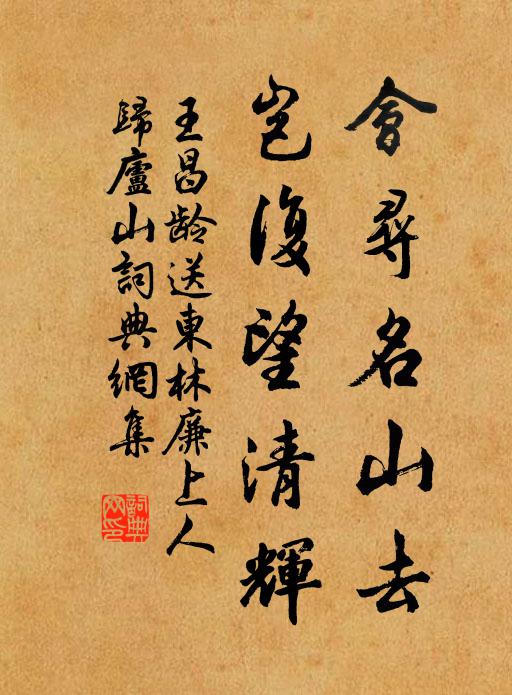 會尋名山去
豈復望清輝
王昌龄送東林廉上人
歸廬山詞典網集
詞典網印